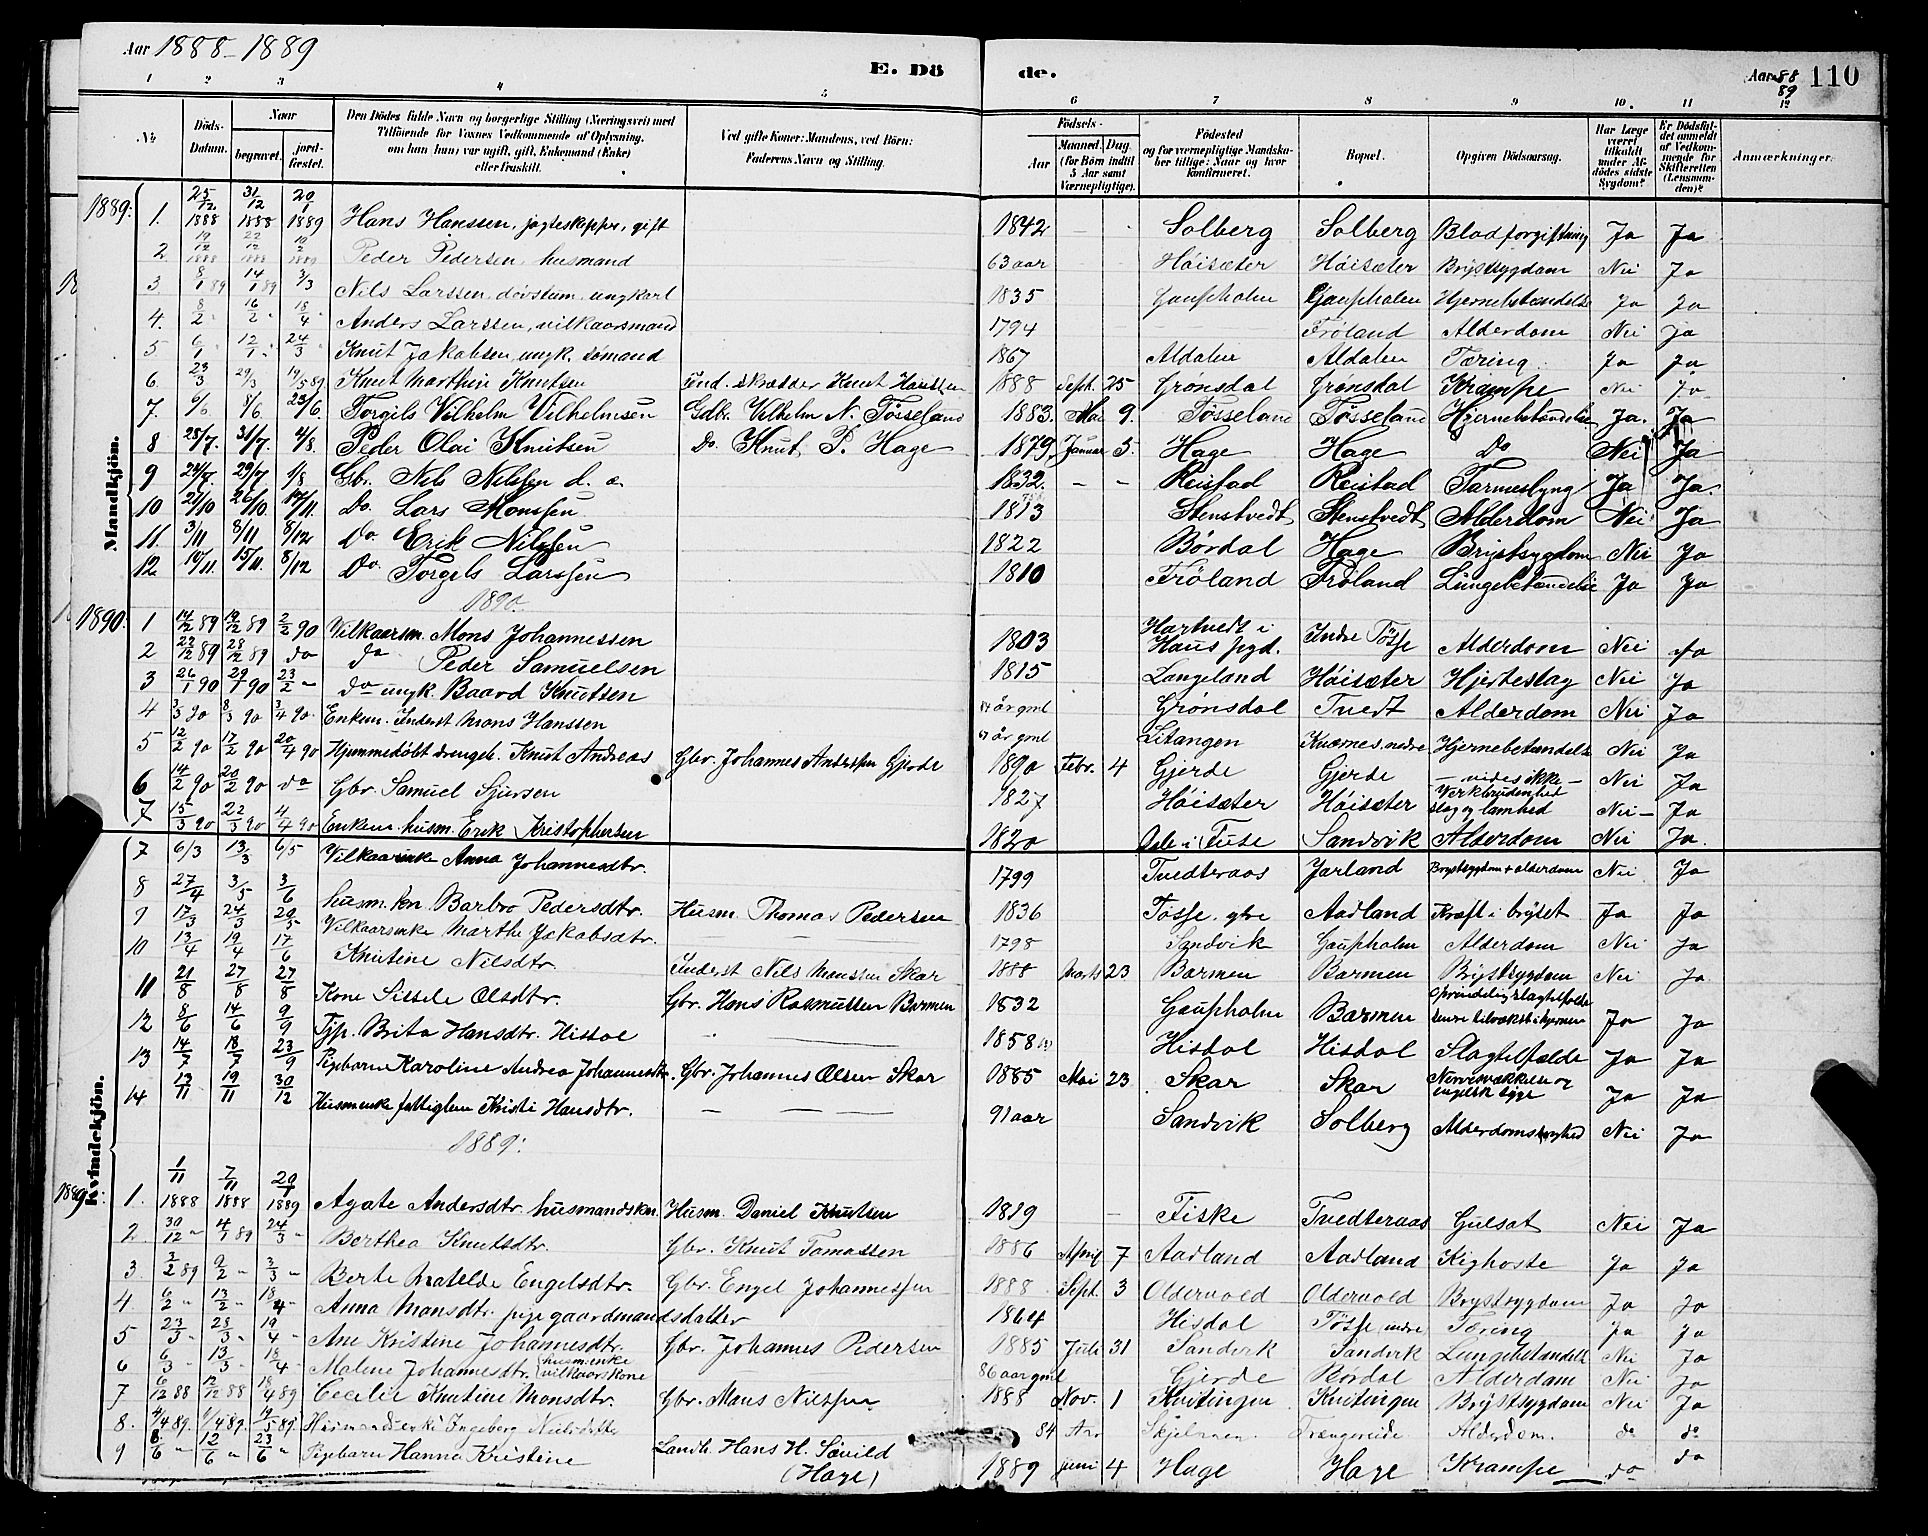 Aar 1888-1889
E. Dö de.
Aar 88 89 110
1 2 3 4 5 6 7 8 9 10. 11 12
No. Döds-Datum. Naar begravet. jordfæstet. Den Dödes fulde Navn og borgerlige Stilling (Næringsvei) med Tilföiende for Voxnes Vedkommende af Oplysning, om han (hun) var ugift, gift, Enkemand (Enke) eller fraskilt. Ved gifte Koner: Mandens, ved Börn: Faderens Navn og Stilling. Födsels- Aar Maaned. Dag. (for Börn indtil 5 Aar samt Værnepligtige). Födested og for værnepligtige Mandskaber tillige: Naar og hvor konfirmeret. Bopæl. Opgiven Dödsaarsag. Har Læge været tilkaldt under Afdödes sidste Sygdom? Er Dödsfaldet anmeldt af Vedkommende for Skifteretten (Lensmanden)? Anmærkninger.
Mandkjön.
1889: 1. 25/12 1888 31/12 1888 20/1 1889 Hans Hanssen, jagteskipper, gift 1842 Solberg Solberg Blodforgiftning Ja Ja
2 19/12 1888 22/12 1888 10/2 1889 Peder Pedersen, husmand 63 aar Höisæter Höisæter Brystsygdom Nei Ja
3 8/1 89 14/1 89 3/3 Nils Larssen, dövstum, ungkarl 1835 Gaupholm Gaupholm Hjernebetændelse Ja Ja
4. 8/2 16/2 18/4 Anders Larssen, vilkaarsmand 1794 Fröland Alderdom Nei Ja
5 6/1 12/1 24/3 Knut Jakobsen, ungk. sömand 1867 Aldalen Aldalen Tæring Ja Ja
6. 23/3 29/3 19/5 89 Knut Marthin Knutsen Ind. skrædder Knut Hanssen 1888 Sept. 25 Grönsdal Grönsdal Krampe Nei Ja
7. 6/6 8/6. 23/6. Torgils Vilhelm Vilhelmsen Gdbr. Vilhelm N. Tösseland 1883. Mai 9. Tösseland Tösseland Hjernebetændelse Ja. Ja
8 28/7. 31/7. 4/8. Peder Olai Knutsen Do. Knut P. Hage 1879, Januar 5. Hage Hage Do Nei Ja
9 24/7. 29/7 1/8 Gbr. Nils Nilssen d. æ. 1832. - - Reistad Reistad Tarmeslyng Ja Ja.
10 21/10 26/10 17/11. Do. Lars Monssen 1813 Stenstvedt Stenstvedt Alderdom Nei Ja
11. 3/11 8/11 8/12 Do Erik Nilssen 1822 Bördal Hage Brystsygdom Nei Ja
12 10/11. 15/11. 8/12 Do. Torgils Larssen 1810 Fröland Fröland Lungebetændelse Ja Ja
1890.
1890: 1 14/12 89 19/12 89 2/2 90 Vilkaarsm. Mons Johannessen 1803 Hartvedt i Haus pgd. Indre Tösse Alderdom Nei Ja
2 22/12 89 28/12 89 do do Peder Samuelsen 1815 Langeland Höisæter Hjerteslag Nei Ja
3 26/1 90 29/1 90 23/2 - do ungk. Baard Knutsen 84 år gml Grönsdal Tvedt Alderdom Nei Ja
4 3/3 90 8/3 90 3/4 90. Enkem. Inderst Mons Hanssen 67 år gml Litangen Knernes nedre Hjernebetændelse Nei Ja
5 12/2 90 17/2 90 20/4 90 Hjemmedöbt drengeb. Knut Andreas Gbr. Johannes Anderssen Gjerde 1890 Febr. 4 Gjerde Gjerde - vides ikke - Nei Ja
6 14/2 90 20/2 90 do Gbr. Samuel Sjursen 1827 Höisæter Höisæter slag og lamhed Nei - Ja
7 15/3 90 22/3 90 4/4 90 Enkem. husm. Erik Kristophersen 1820 i Fuse Sandvik Alderdom Nei Ja.
Kvindekjön.
7 6/3 13/3 6/5 Vilkaarenke Anna Johannesdtr. 1799 Tvedteraas Jarland Brystsygdom + alderdom Nei Ja
8 27/4 3/5 3/6 husm. kn. Barbro Pedersdtr. Husm. Thomas Pedersen 1836 Tösse. ytre Aadland Kræft i brystet Ja Ja
9 17/3 24/3 20/5 Vilkaarsenke Marthe Jakobsdtr. 1798 Sandvik Gaupholm Alderdom Nei Ja
10 13/4 19/4 17/6 Knutine Nilsdtr. Inderst Nils Monssen Skar 1888 Marts 23 Barmen Barmen Brystsygdom Nei Ja
11 21/8 27/8 27/8 Kone Sissele Olsdtr. Gbr. Hans Rasmussen Barmen 1832 Gaupholm Barmen Oprindelig slagtilfælde Ja Ja
12 8/6 14/6 9/9 Tjp. Brita Hansdtr. Hisdal 1858 Hisdal Hisdal Slagtilfælde Ja Ja
13 14/7 18/7 23/9 Pigebarn Karoline Andrea Johannesdtr. Gbr. Johannes Olsen Skar 1885 Mai 23 Skar Skar Nervesvækkelse og engelsk syge Ja Ja
14 13/11 19/11 30/12 Husmenke fattiglem Kristi Hansdtr. 91 aar Sandvik Solberg Alderdomssvaghed Nei Ja
1889:
1889: 1. 1/11 1888 7/11 1888 20/1 1889 Agate Andersdtr. husmandskn. Husm. Daniel Knutsen 1819 - Fiske Tvedteraas Gulsot Nei Ja
2. 30/12 - 4/1 89 24/3 - Berthea Knutsdtr. Gbr. Knut Tomassen 1886 April 7 Aadland Aadland Kighoste Ja Ja
3. 3/2 89 9/2 - 3/3 - Berte Matelde Engelsdtr. Gbr. Engel Johannessen 1888 Sept. 3 Oldervold Oldervold Brystsygdom Ja Ja
4 6/2 - 13/2 - 18/4 - Anna Monsdtr. pige gaardmandsdatter 1864 Hisdal Tösse indre Tæring Ja Ja
5 23/3 - 28/3 - 19/4 - Ane Kristine Johannesdtr. Gbr. Johannes Pedersen 1885 Juli 31 Sandvik Sandvik Lungebetændelse Nei Ja
6 6/3 - 13/3 - 18/4 - Malene Johannesdtr. husm.enke vilkaarskone 86 aar gml Gjerde Bördal Alderdom Nei Ja
7 6/12 88 12/12 88 18/4 89 Cecilie Knutine Monsdtr. Gbr. Mons Nilssen 1888 Nov. 1 Knitingen Knitingen Brystsygdom Nei Ja
8. 4/4 89. 9/4 89. 19/5 89. Husmandsenke Ingeborg Neilsdatter 84 Aar Trængereide Alderdom. do do
9 8/6 " 12/6 " 23/6 " Pigebarn Hanna Kristine Landh. Hans H. Sævild (Hage) 1889 juni 4 Hage Hage Krampe do do